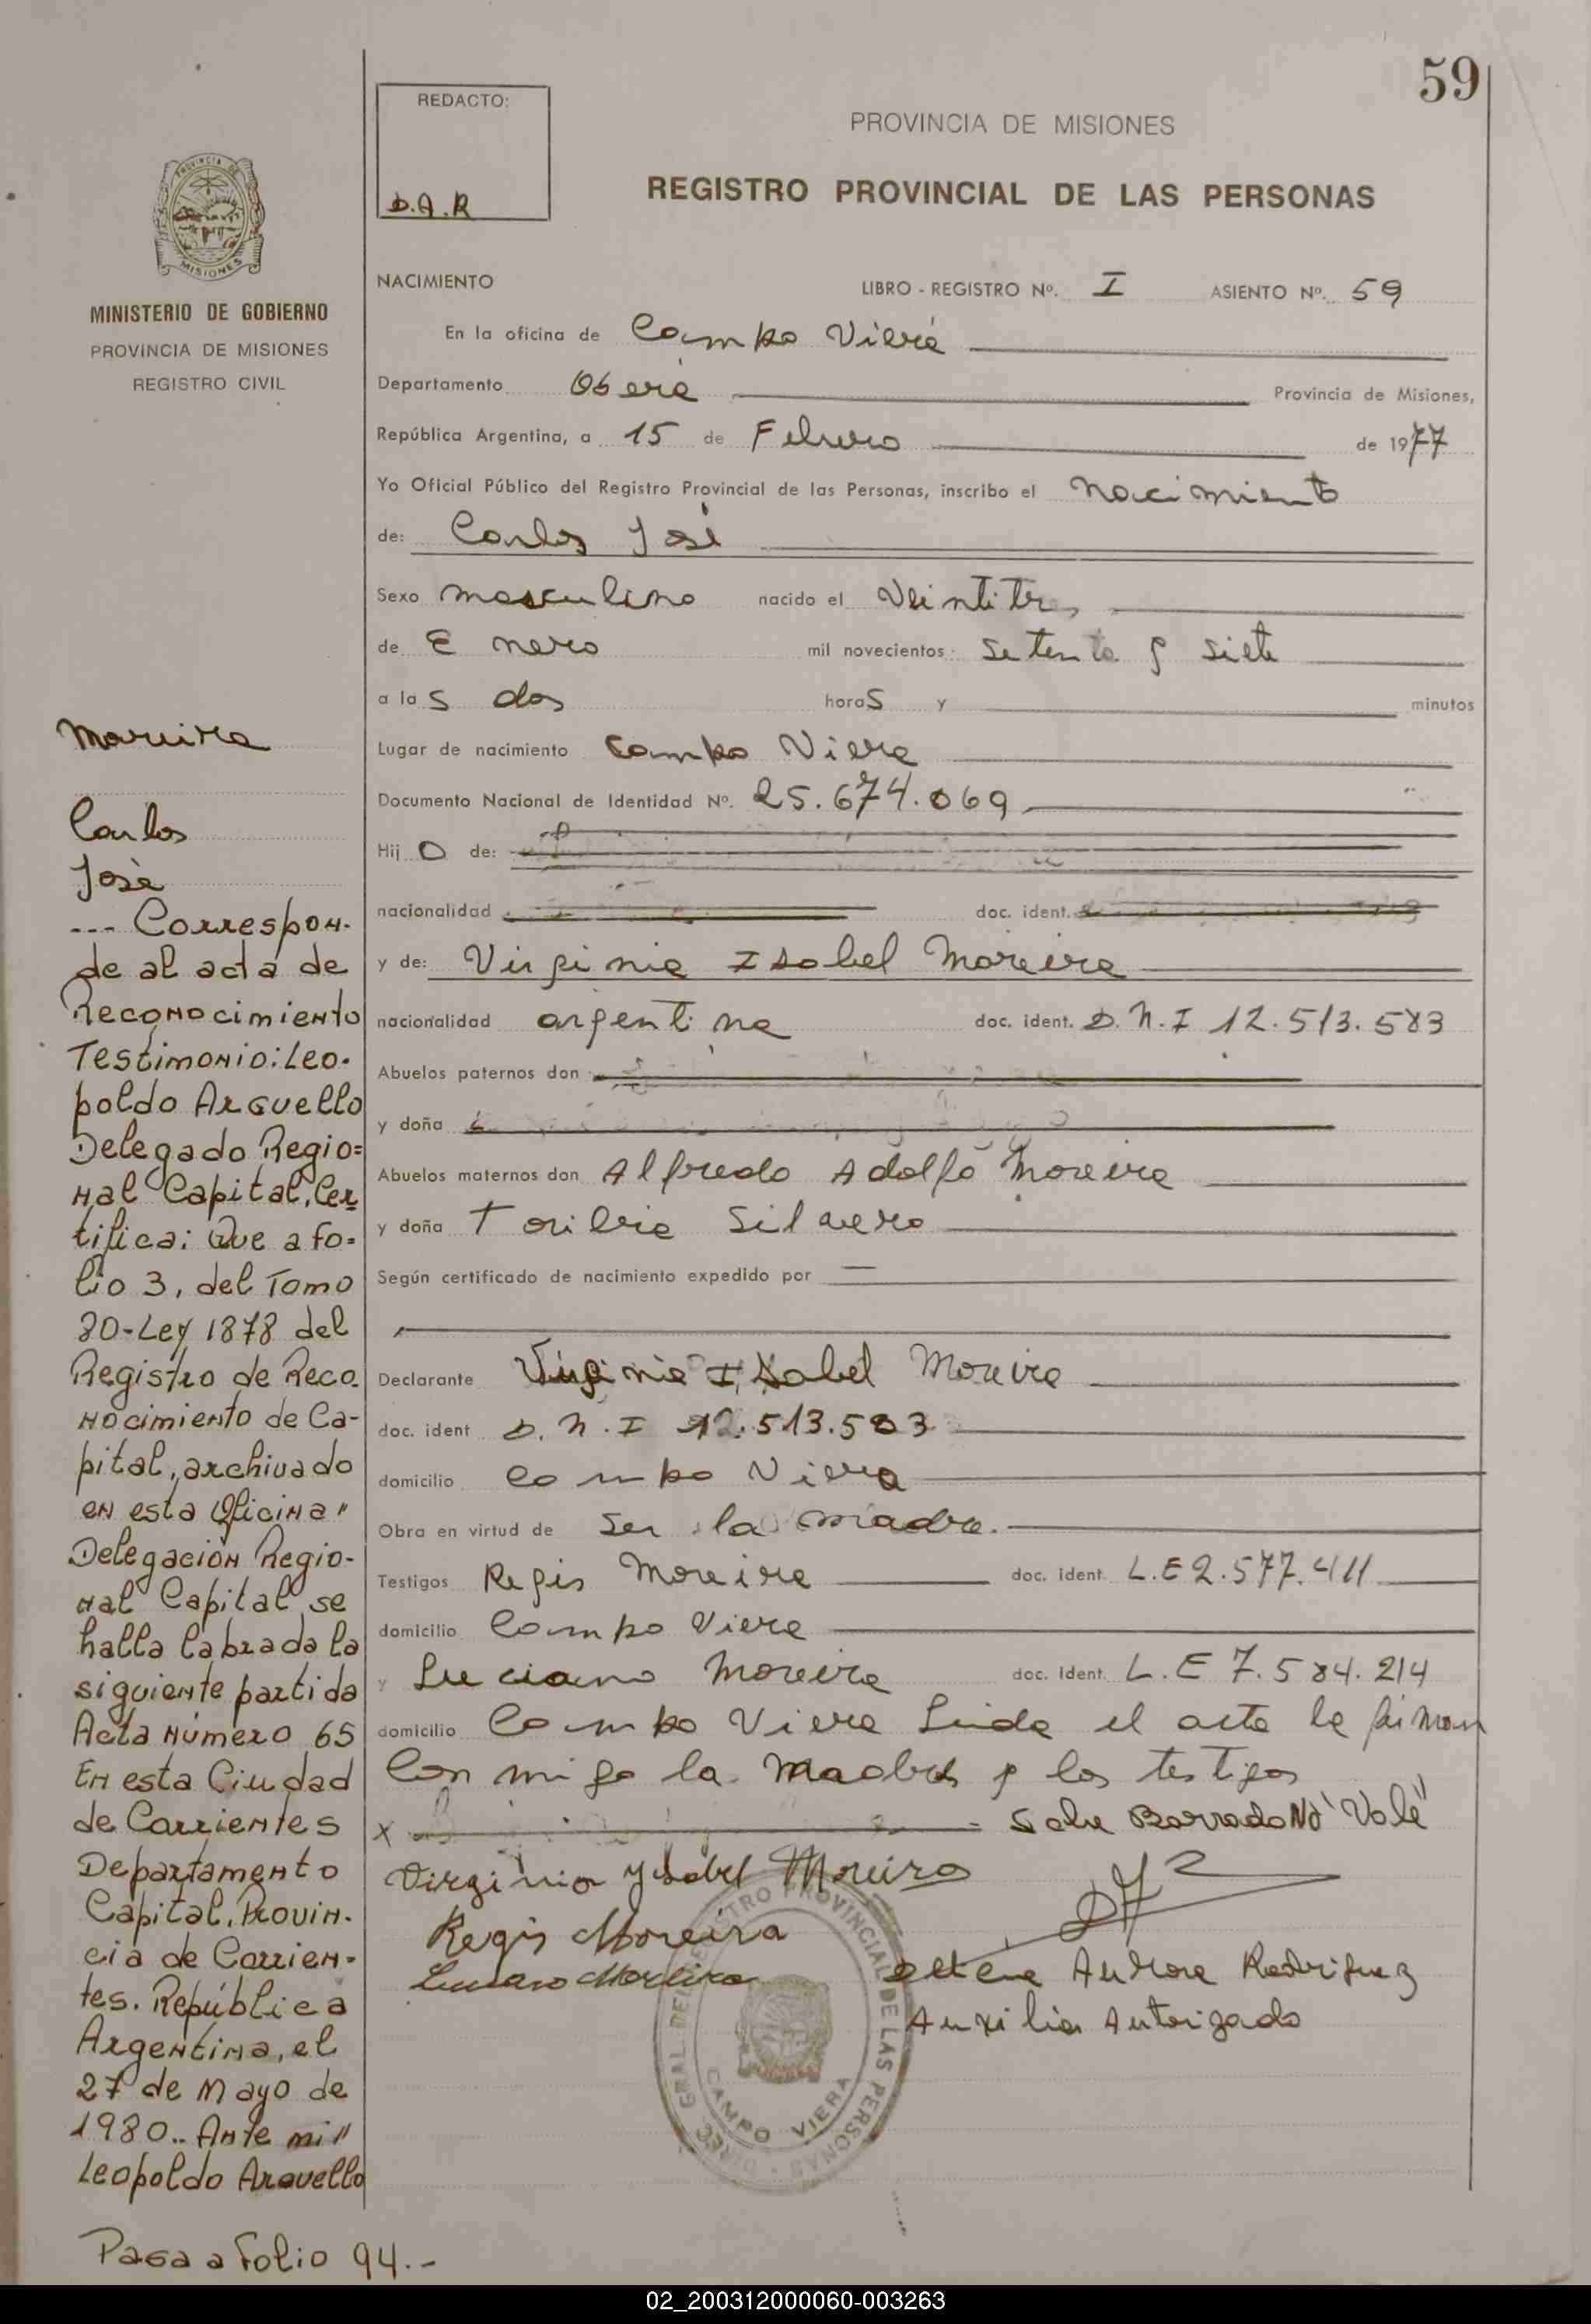 59
REDACTO:
D.A.R
PROVINCIA DE MISIONES
REGISTRO PROVINCIAL DE LAS PERSONAS
PROVINCIA DE
MISIONES
MINISTERIO DE GOBIERNO
PROVINCIA DE MISIONES
REGISTRO CIVIL
NACIMIENTO LIBRO - REGISTRO Nº. I ASIENTO Nº. 59
En la oficina de Campo Viera
Departamento Oberá Provincia de Misiones,
República Argentina, a 15 de Febrero de 1977
Yo Oficial Público del Registro Provincial de las Personas, inscribo el nacimiento
de: Carlos José
Sexo masculino nacido el Veintitres
de Enero mil novecientos setenta y siete
a las dos horas y minutos
Lugar de nacimiento Campo Viera
Documento Nacional de Identidad Nº. 25.674.069
Hijo de:
nacionalidad doc. ident.
y de: Virginia Isabel Moreira
nacionalidad argentina doc. ident. D.N.I 12.513.583
Abuelos paternos don
y doña
Abuelos maternos don Alfredo Adolfo Moreira
y doña Toribia Silvero
Según certificado de nacimiento expedido por
Declarante Virginia Isabel Moreira
doc. ident D.N.I 12.513.583
domicilio Campo Viera
Obra en virtud de ser la madre.
Testigos Regis Moreira doc. ident. L.E 2.577.411
domicilio Campo Viera
y Luciano Moreira doc. ident. L.E 7.584.214
domicilio Campo Viera Leida el acta la firman
conmigo la madre y los testigos
x Sobre Borrado No Vale
Virginia Ysabel Moreira
Regis Moreira
Luciano Moreira
Aurora Rodriguez
Auxiliar Autorizado
DIREC. GRAL. DEL REGISTRO PROVINCIAL DE LAS PERSONAS
CAMPO VIERA
Moreira
Carlos
José
--- Correspon-
de al acta de
Reconocimiento
Testimonio: Leo-
poldo Arguello
Delegado Regio=
nal Capital, Cer
tifica: Que a fo=
lio 3, del Tomo
80-Ley 1878 del
Registro de Reco-
nocimiento de Ca-
pital, archivado
en esta Oficina"
Delegación Regio-
nal Capital se
halla labrada la
siguiente partida
Acta Número 65
En esta Ciudad
de Corrientes
Departamento
Capital, Provin-
cia de Corrien-
tes. República
Argentina, el
27 de Mayo de
1980.. Ante mi"
Leopoldo Arguello
Pasa a Folio 94.-
02_200312000060-003263